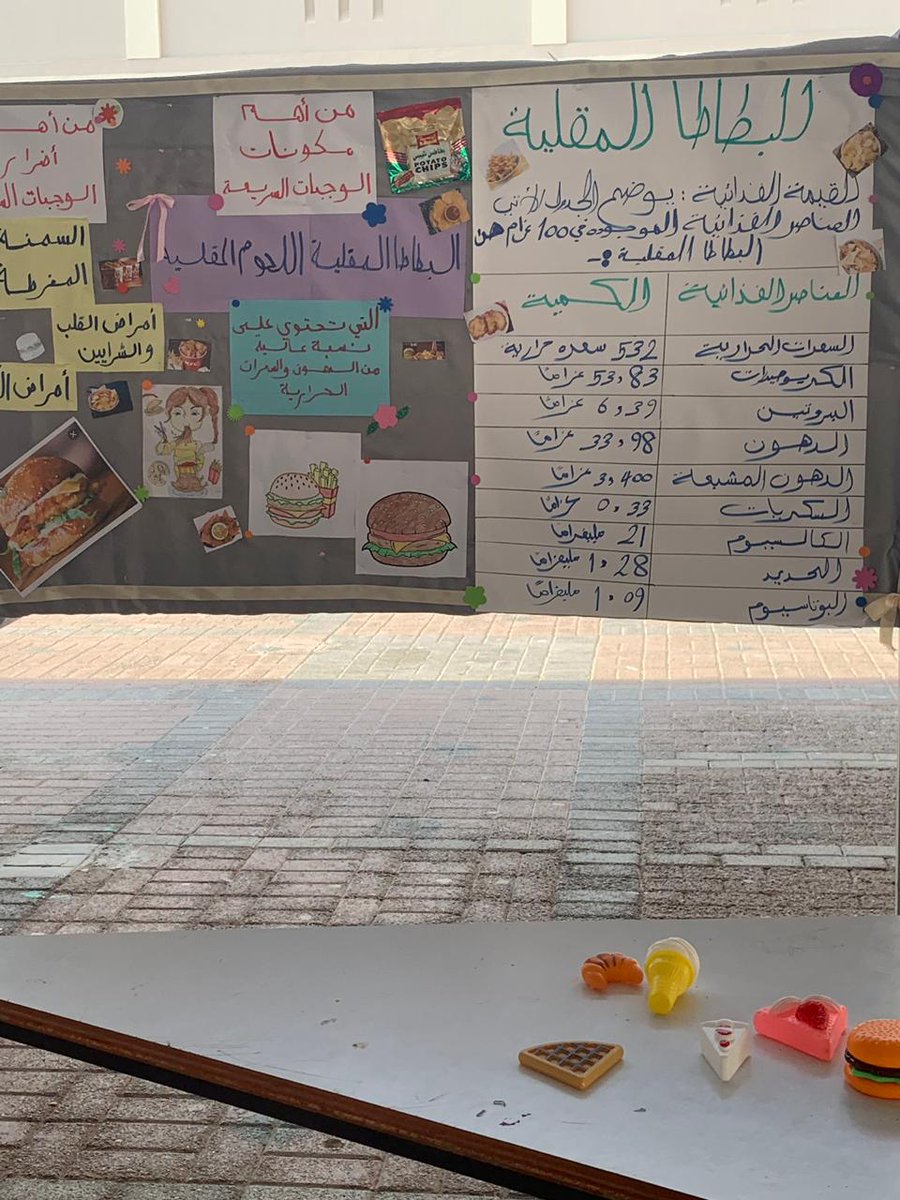 البطاطا المقلية
القيمة الغذائية : يوضح الجدول الآتي
العناصر الغذائية الموجودة في 100 غرام من
البطاطا المقلية :-
العناصر الغذائية الكمية
السعرات الحرارية 532 سعره حرارية
الكربوهيدرات 53,83 غرامًا
البروتين 6,39 غرامًا
الدهون 33,98 غرامًا
الدهون المشبعة 3,400 غرامًا
السكريات 0,33 غرامًا
الكالسيوم 21 مليغرامًا
الحديد 1,28 مليغرامًا
البوتاسيوم 1,09 مليغرامًا
من أهم
مكونات
الوجبات السريعة
POTATO
CHIPS
البطاطا المقلية اللحوم المقلية
التي تحتوي على
نسبة عالية
من الدهون والسعرات
الحرارية
من أهم
أضرار
الوجبات
السمنة
المفرطة
أمراض القلب
والشرايين
أمراض